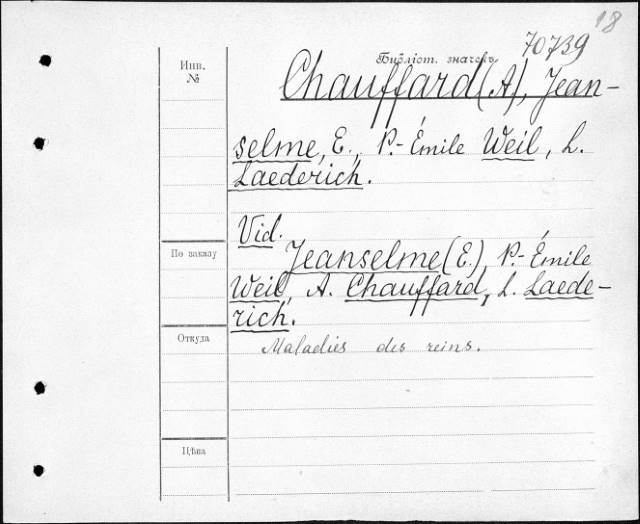 18
70739
Инв.
№
Библіот. значекъ
Chauffard (A), Jean-
selme, E., P.-Émile Weil, L.
Laederich.
Vid.
По заказу
Jeanselme (E.), P.-Émile
Weil, A. Chauffard, L. Laede-
rich.
Откуда
Maladies des reins.
Цѣна